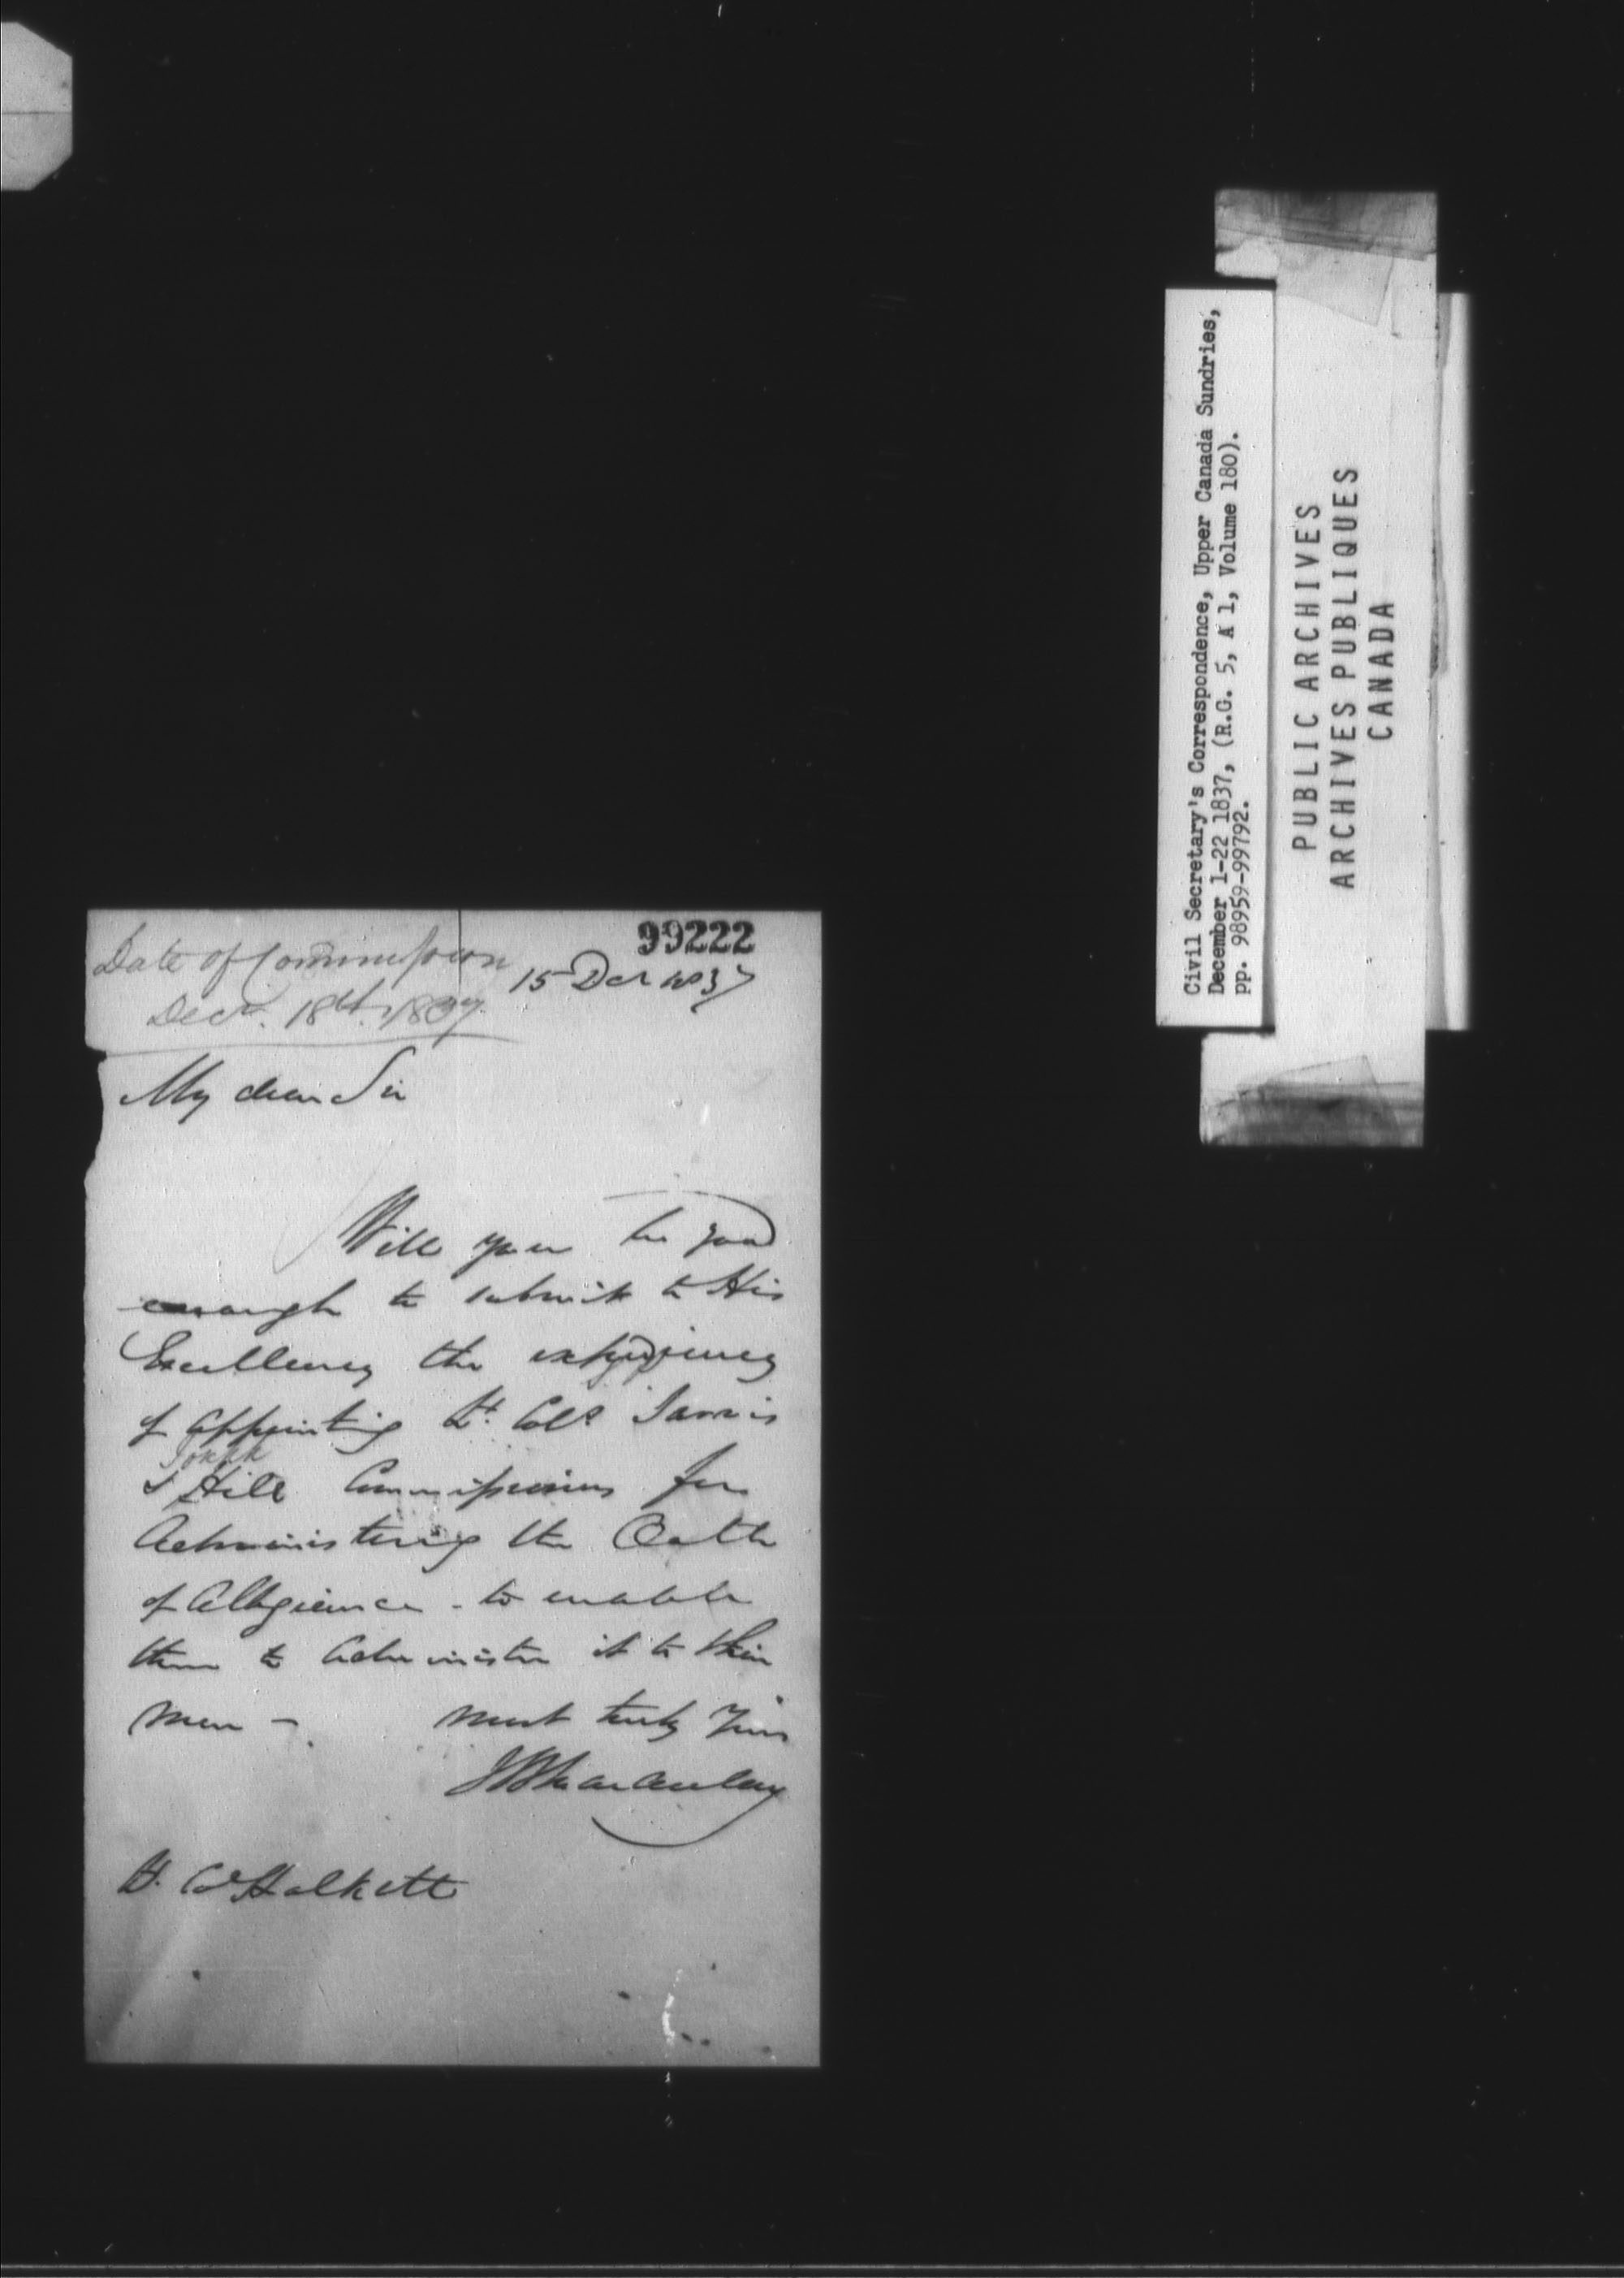 99222
Date of Commission
Decr. 18th. 1837.
15 Dec 1837
My dear Sir
Will you be good
enough to submit to His
Excellency the expediency
of appointing Lt. Cols Jarvis
Joseph
& Hill Commissioners for
Administering the Oath
of Allegiance - to enable
them to Administer it to their
men -
most truly Yours
JBMacaulay
Lt. Col Halkett
Civil Secretary's Correspondence, Upper Canada Sundries,
December 1-22 1837, (R.G. 5, A 1, Volume 180).
pp. 98959-99792.
PUBLIC ARCHIVES
ARCHIVES PUBLIQUES
CANADA